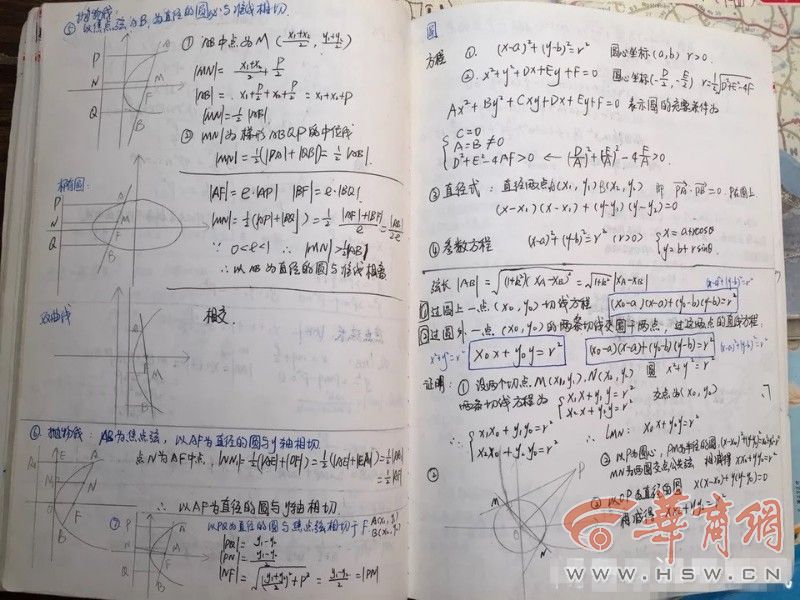 抛物线:
⑤ 以焦点弦AB为直径的圆必与准线相切.
① AB中点为M (x₁+x₂/2, y₁+y₂/2)
|MN| = x₁+x₂/2 + P/2
|AB| = x₁+P/2+x₂+P/2 = x₁+x₂+P
|MN| = ½|AB|.
② MN为梯形ABQP的中位线
|MN| = ½(|PA|+|QB|) = ½|AB|.
椭圆:
|AF| = e·|AP| |BF| = e·|BQ|.
|MN| = ½(|AP|+|BQ|) = ½ |AF|+|BF|/e = |AB|/2e
∵ 0<e<1 ∴ |MN|>½|AB|
∴ 以AB为直径的圆与准线相离
双曲线
相交.
⑥ 抛物线: AB为焦点弦, 以AF为直径的圆与y轴相切
点N为AF中点,
∴ 以AF为直径的圆与y轴相切.
⑦ 以PQ为直径的圆与焦点弦相切于F. A(x₁, y₁)
B(x₂, y₂)
|PQ| = y₁-y₂
|PN| = y₁-y₂/2
圆
方程 ①. (x-a)²+(y-b)²=r² 圆心坐标(a,b) r>0.
②. x²+y²+Dx+Ey+F=0 圆心(-D/2,-E/2) r=½√D²+E²-4F
Ax²+By²+Cxy+Dx+Ey+F=0 表示圆的充要条件为
C=0
A=B≠0
D²+E²-4AF>0 ← (D/A)²+(E/A)²-4F/A>0.
③ 直径式: 直径两点A(x₁,y₁)B(x₂,y₂) 即 PA·PB=0. P在圆上
(x-x₁)(x-x₂)+(y-y₁)(y-y₂)=0
④ 参数方程 (x-a)²+(y-b)²=r² (r>0) x=a+rcosθ
y=b+rsinθ
弦长 |AB|=√(1+k²)(x_A-x_B)²=√1+k²|x_A-x_B|
(x-a)²+(y-b)²=r²
① 过圆上一点(x₀,y₀)切线方程 (x₀-a)(x-a)+(y₀-b)(y-b)=r²
② 过圆外一点(x₀,y₀)的两条切线交圆于两点, 过这两点的直线方程.
x²+y²=r² x₀x+y₀y=r² (x₀-a)(x-a)+(y₀-b)(y-b)=r² (x-a)²+(y-b)²=r²
证明: ① 设两个切点M(x₁,y₁),N(x₂,y₂) 圆 x²+y²=r²
两条切线方程为 x₁x+y₁y=r² 交点为(x₀,y₀)
x₂x+y₂y=r²
∴ x₁x₀+y₁y₀=r² ∴ L_MN: x₀x+y₀y=r²
x₂x₀+y₂y₀=r²
②
MN为两圆交点公共弦 相减得 xx₀+yy₀=r²
x(x-x₀)+y(y-y₀)=0
华商網
WWW.HSW.CN